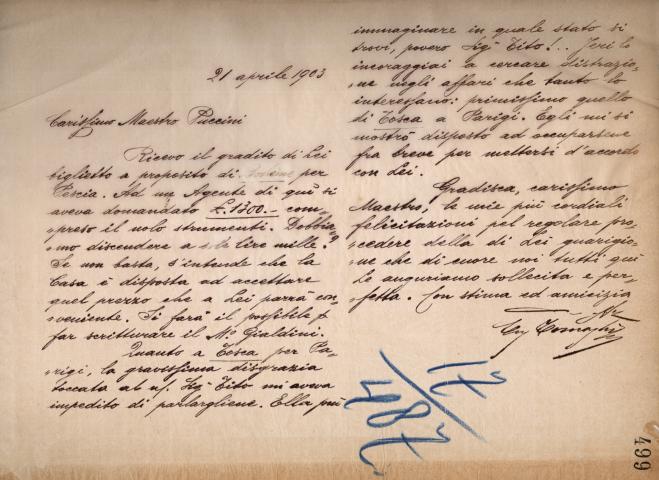 21 aprile 1903
Carissimo Maestro Puccini
Ricevo il gradito di Lei
biglietto a proposito di per
Pescia. Ad un Agente di quà si
aveva domandato £. 1300.- com-
preso il nolo strumenti. Dobbia-
mo discendere a sole lire mille?
Se non basta, s'intende che la
Casa è disposta ad accettare
quel prezzo che a Lei parrà con-
veniente. Si farà il possibile p
far scritturare il Mº Gialdini.
Quanto a Tosca per Pa-
rigi, la gravissima disgrazia
toccata al n/. Sigr Tito mi aveva
impedito di parlargliene. Ella può
immaginare in quale stato si
trovi, povero Sigr Tito!.. Jeri lo
incoraggiai a cercare distrazio-
ne negli affari che tanto lo
interessano: primissimo quello
di Tosca a Parigi. Egli mi si
mostrò disposto ad occuparsene
fra breve per mettersi d'accordo
con Lei.
Gradisca, carissimo
Maestro, le mie più cordiali
felicitazioni pel regolare pro-
cedere della di Lei guarigio-
ne che di cuore noi tutti qui
Le auguriamo sollecita e per-
fetta. Con stima ed amicizia
17/487
499